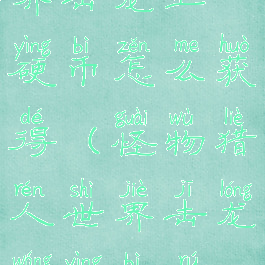 yìng bì zěn me huò
硬币怎么获
dé guài wù liè
得（怪物猎
rén shì jiè jī lóng
人世界击龙